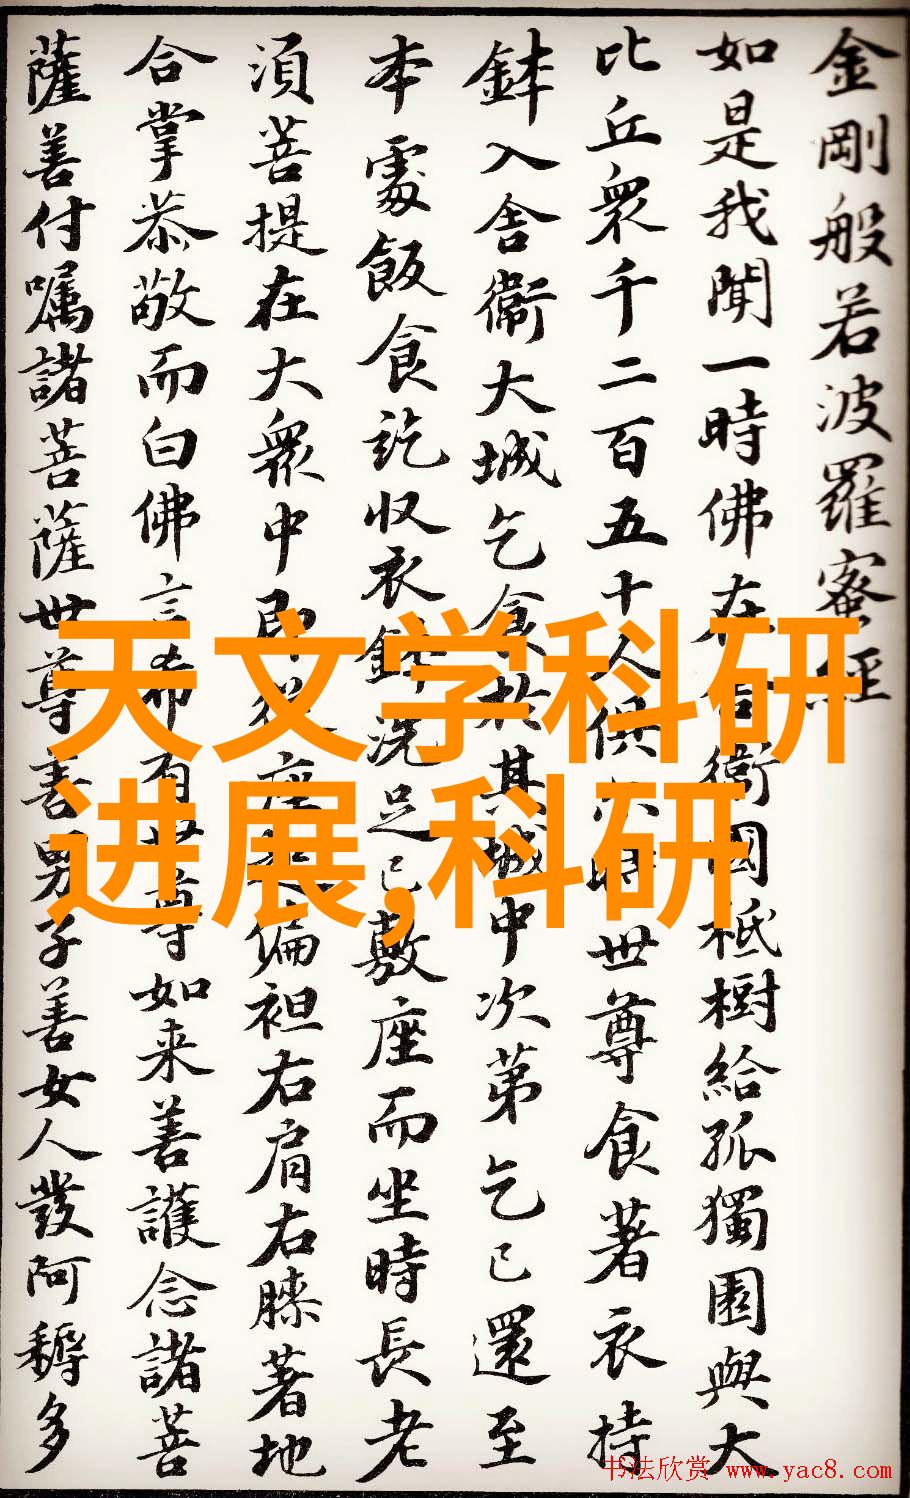 金剛般若波羅蜜經
如是我聞一時佛在舍衛國祇樹給孤獨園與大
比丘衆千二百五十人俱尒時世尊食著衣持
鉢入舍衞大城乞食於其城中次第乞已還至
本處飯食訖收衣鉢洗足已敷座而坐時長老
湏菩提在大衆中即從座起偏袒右肩右膝著地
合掌恭敬而白佛言希有世尊如来善護念諸菩
薩善付囑諸菩薩世尊善男子善女人發阿耨多
天文学科研
进展,科研
书法欣赏 www.yac8.com